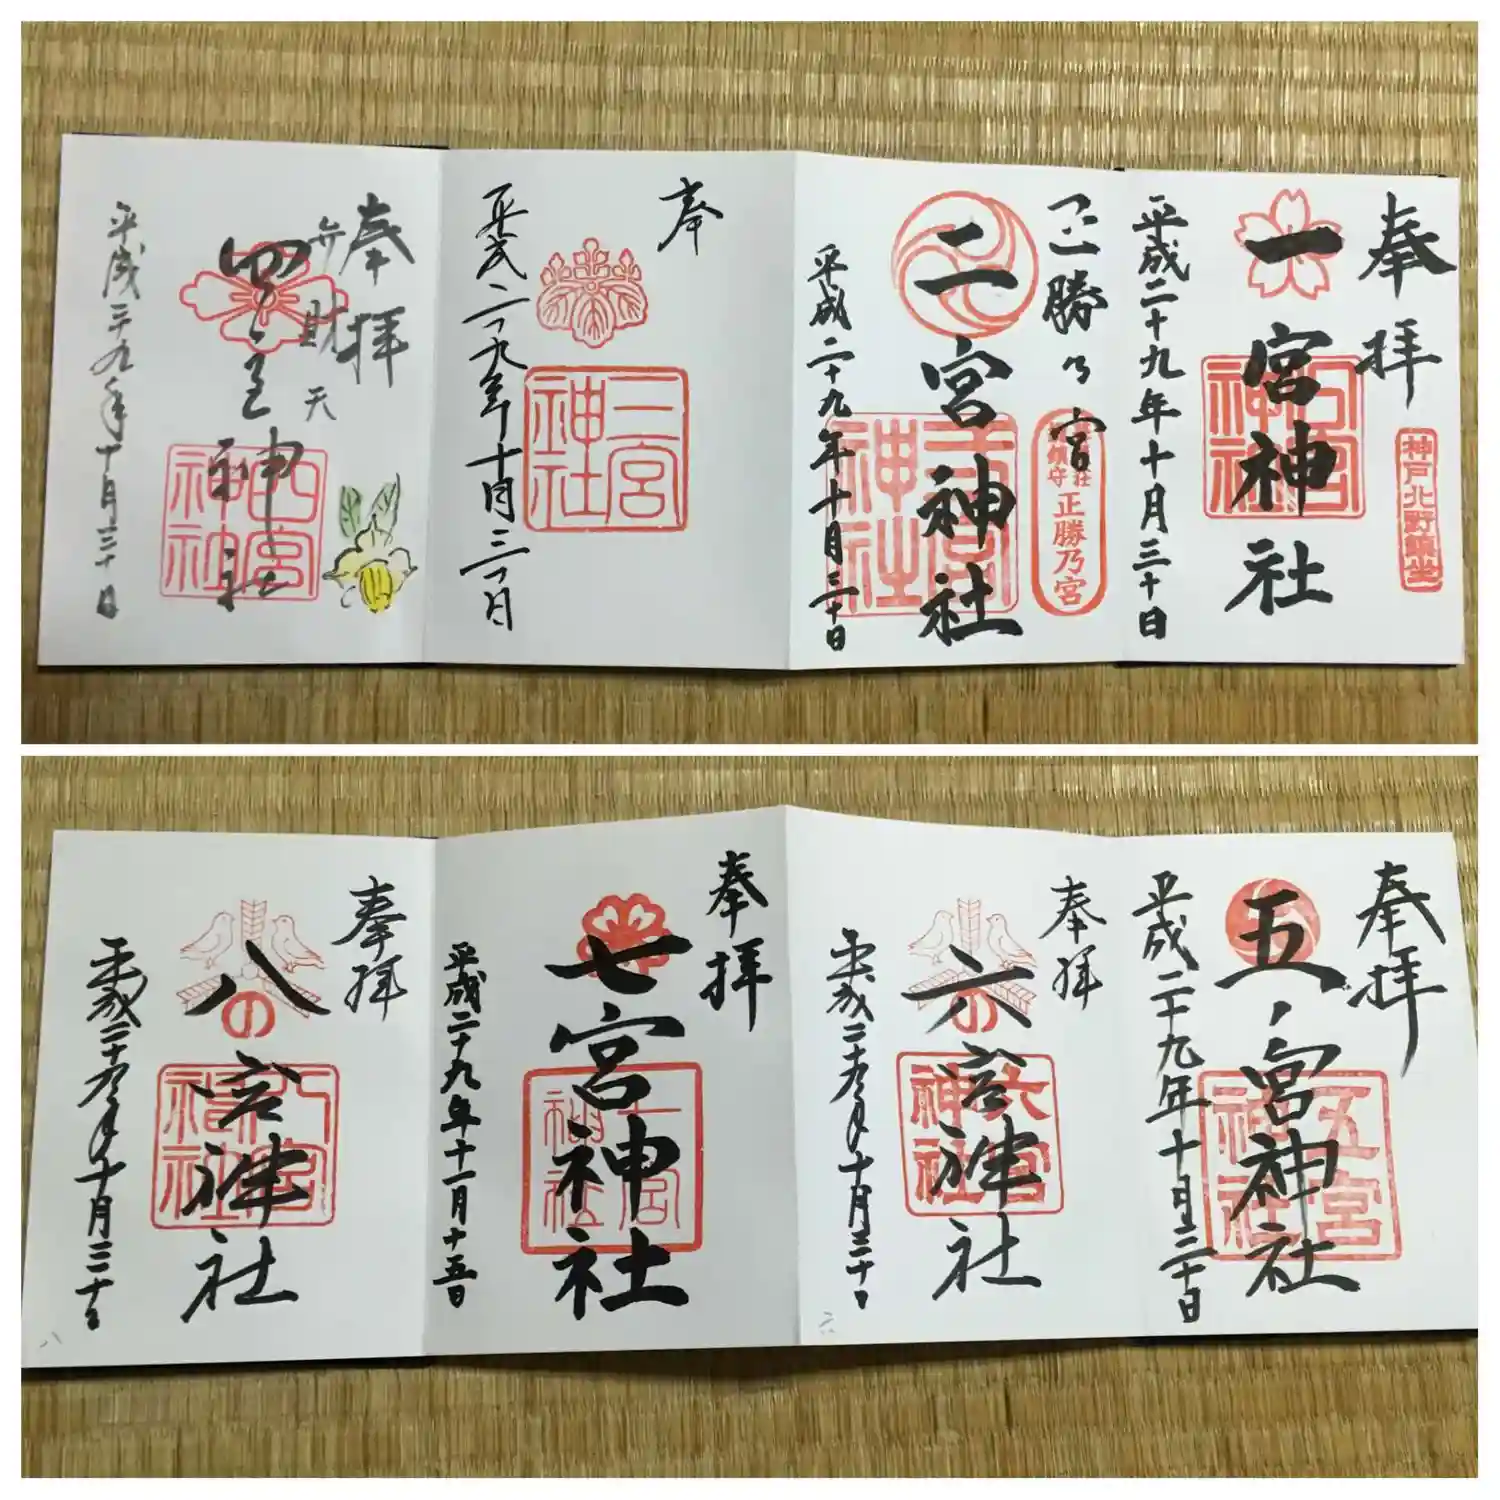 奉拝
一宮神社
一宮神社
神戸北野鎮座
平成二十九年十月三十日
正勝乃宮
二宮神社
二宮神社
鎮守
正勝乃宮
平成二十九年十月三十日
奉
三宮神社
平成二十九年十月三十日
奉拝
弁財天
四宮神社
四宮神社
平成二十九年十月三十日
奉拝
五ノ宮神社
五宮神社
平成二十九年十月三十日
奉拝
六宮神社
の
六宮神社
平成二十九年十月三十日
六
奉拝
七宮神社
七宮神社
平成二十九年十一月十五日
奉拝
八宮神社
の
八宮神社
平成二十九年十月三十日
八